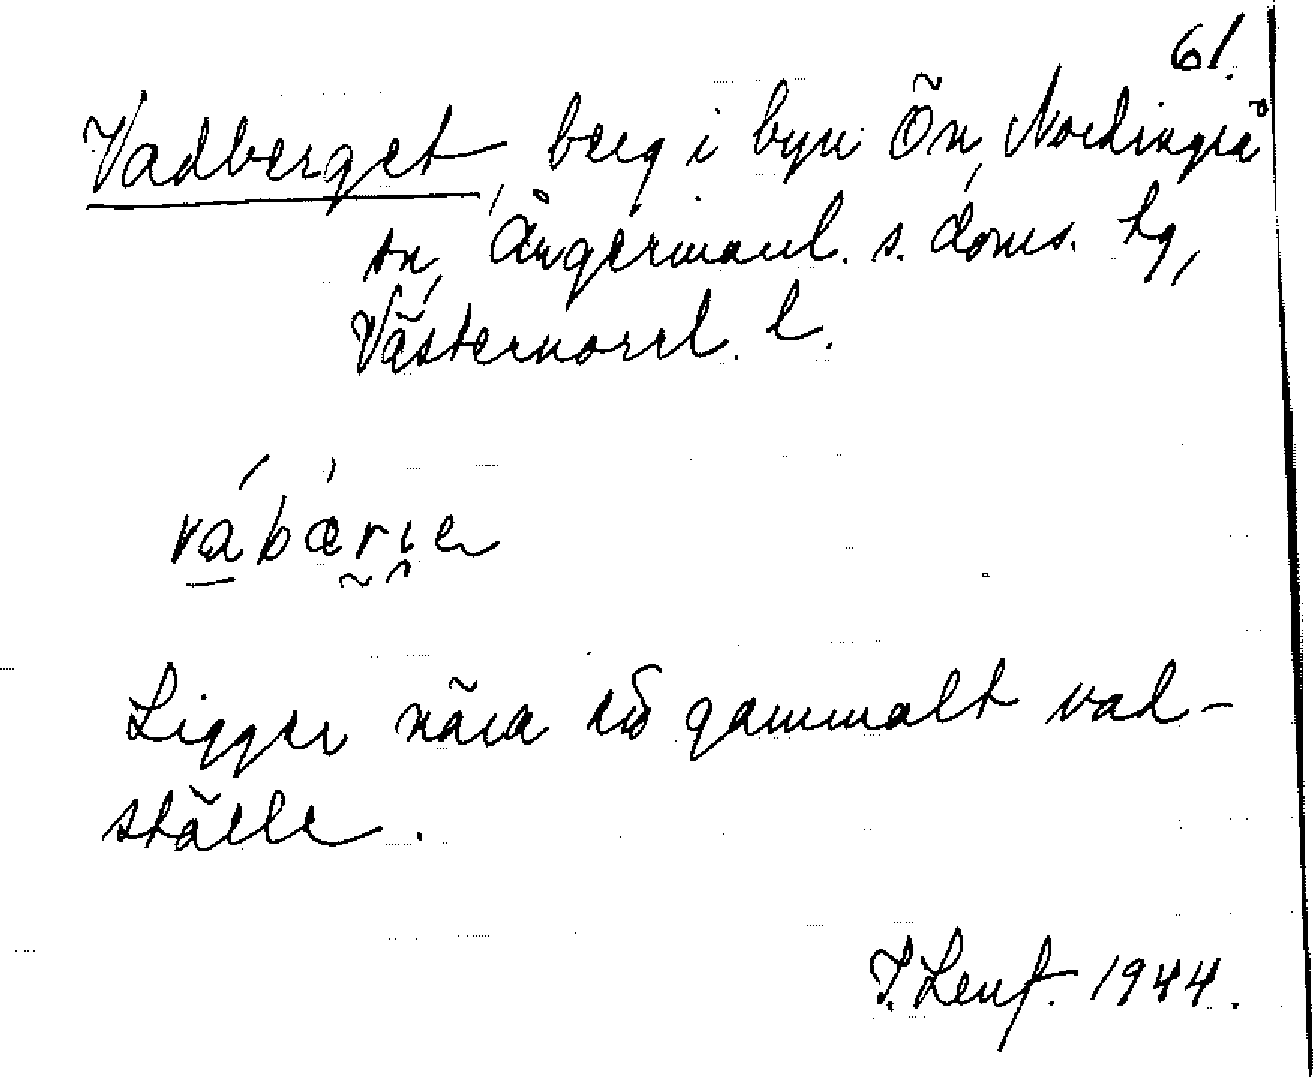 61.
Vadberget, berg i byn Ön, Nordingrå
sn, Ångermanl. s. doms. hg,
Västernorrl. l.
vábæ̀rɩe
Ligger nära ett gammalt vad-
ställe.
1944.